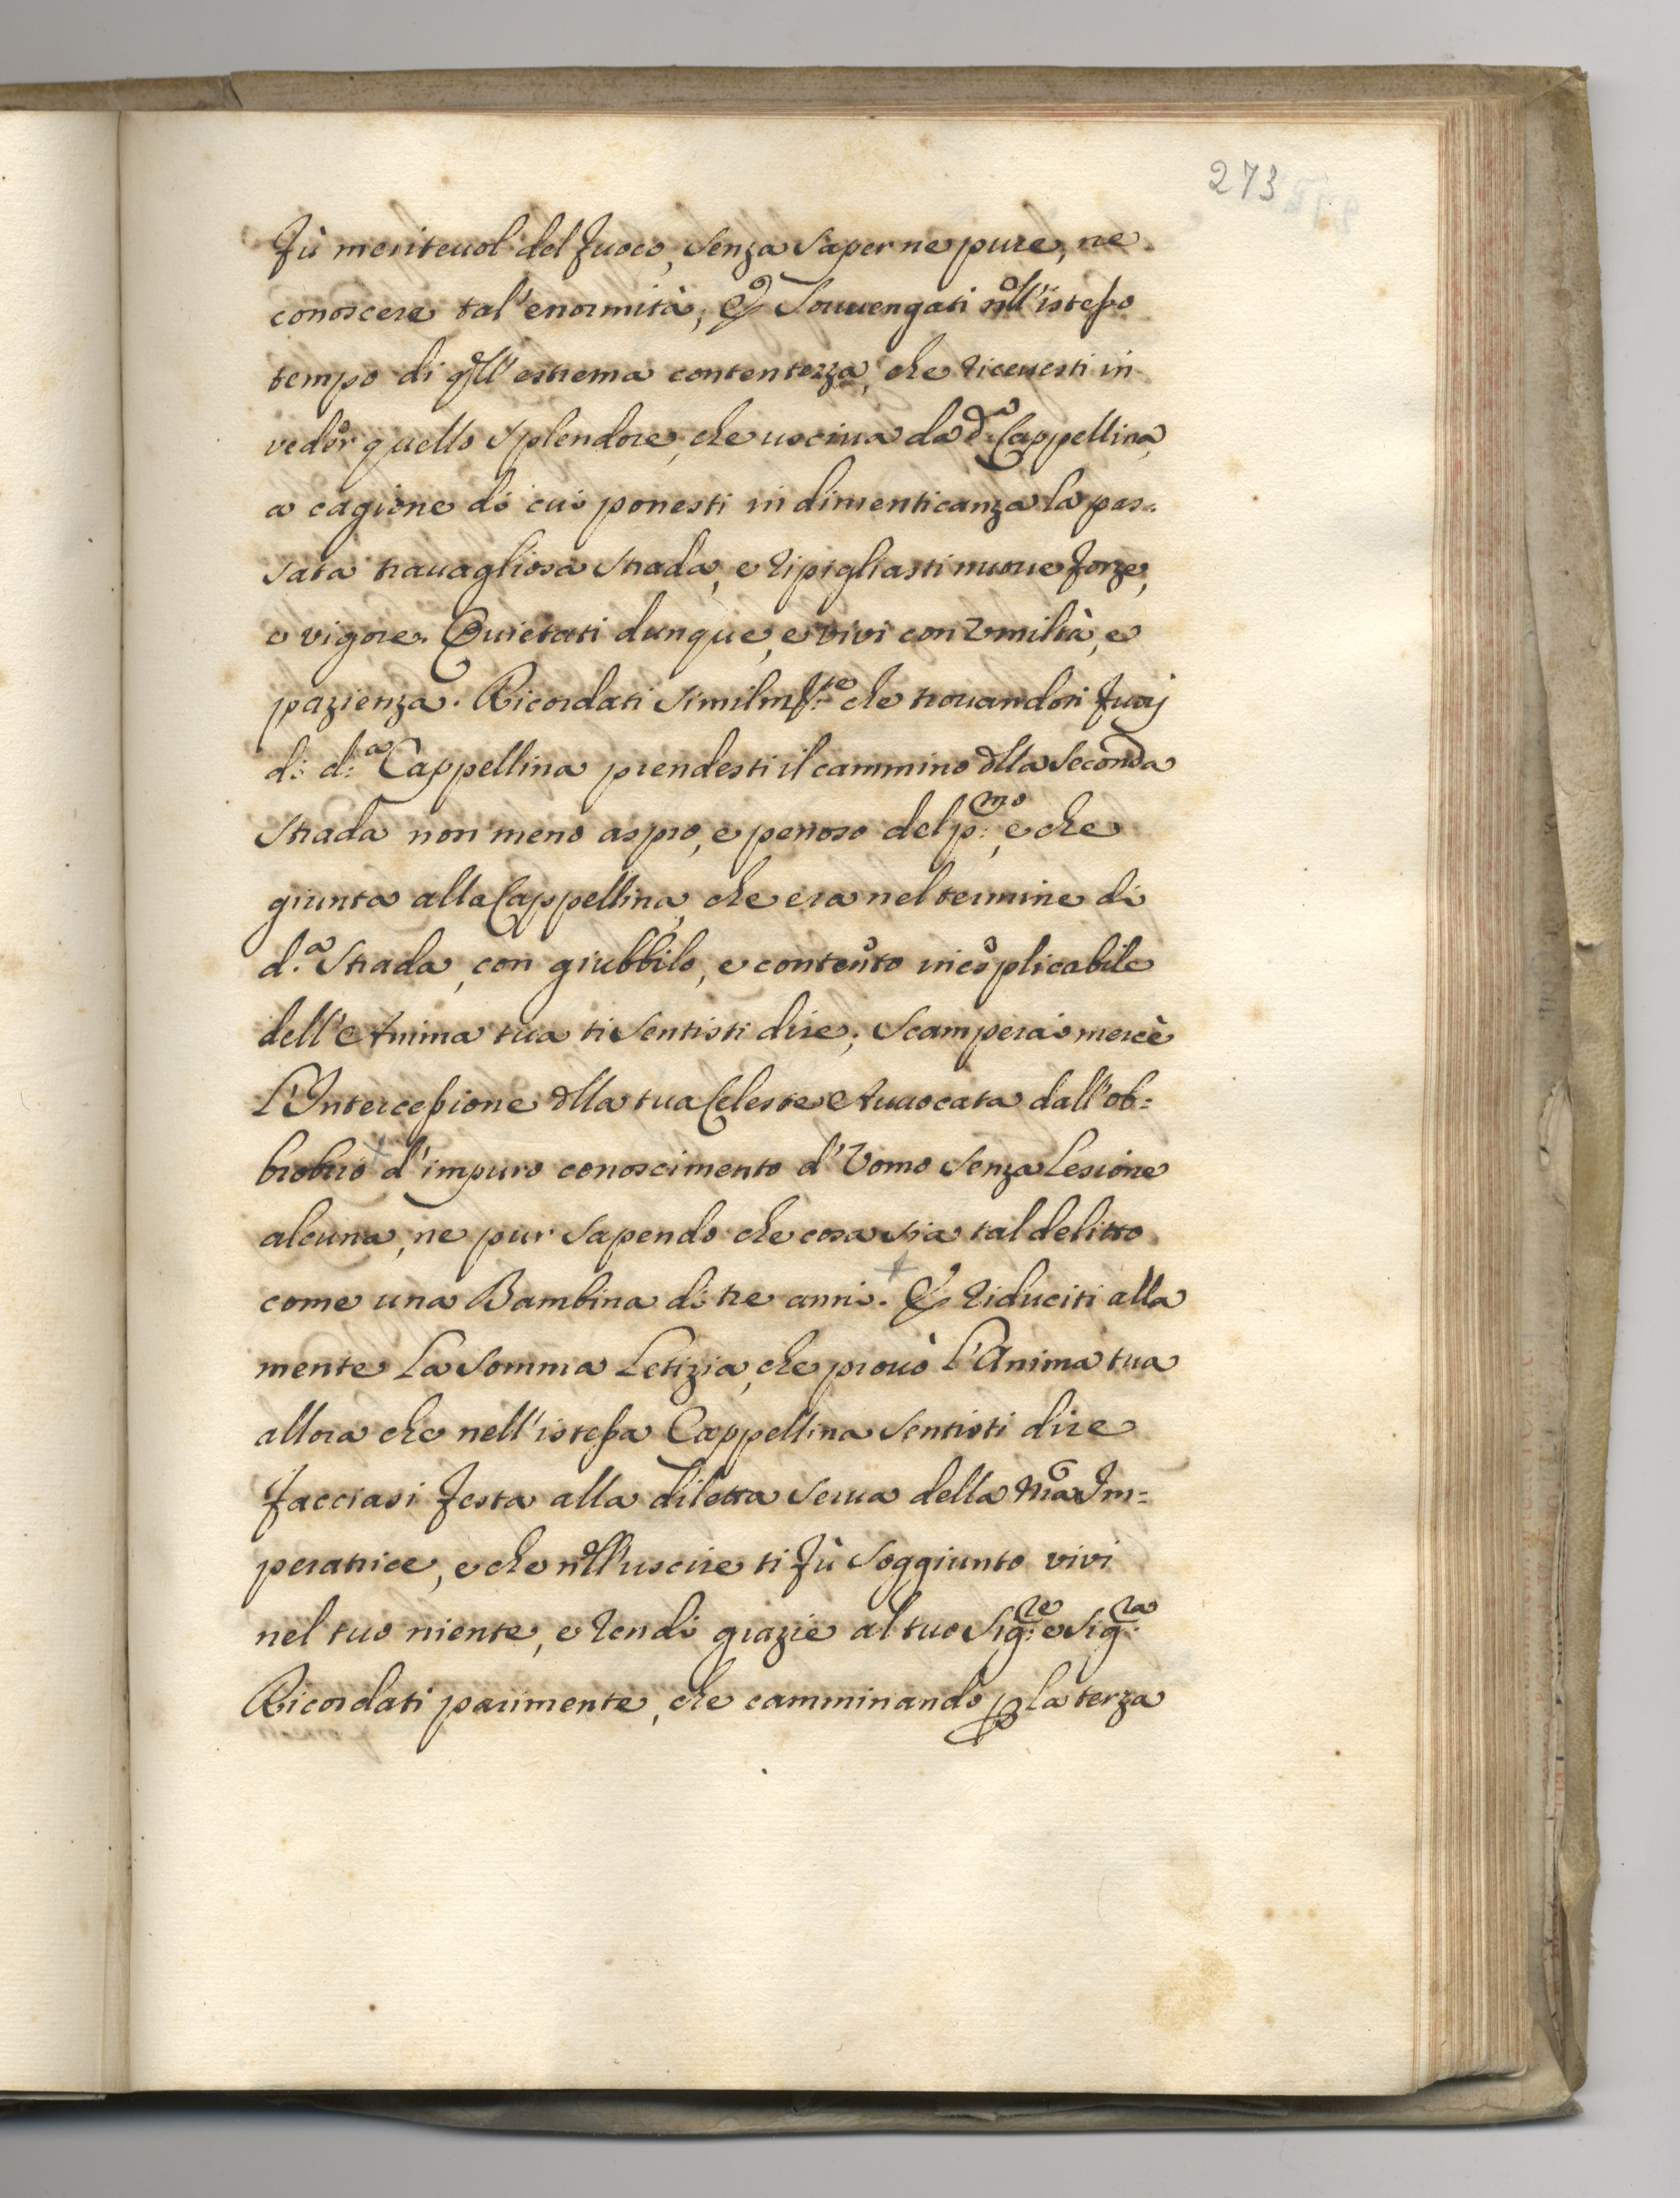 273
Fù meriteuol del fuoco, senza saper ne pure, ne
conoscere tal'enormità; Et souuengati nell'istesso
tempo di qll'estrema contentezza, che riceuesti in
veder quello splendore, che usciua da d.ª Cappellina,
a cagione di cui ponesti in dimenticanza la pas=
sata trauagliosa strada, e ripigliasti nuoue forze,
e vigore. Quietati dunque, e vivi con Vmiltà, e
pazienza. Ricordati similm.te che trouandosi fuorj
di d:ª Cappellina prendesti il cammino dlla seconda
strada non meno aspro, e penoso del p:mo, e che
giunta alla Cappellina, che era nel termine di
d.ª strada, con giubbilo, e contento inesplicabile
dell'Anima tua ti sentisti dire; Scamperai mercè
L'Intercessione dlla tua Celeste Auuocata dall'ob=
brobrio d'impuro conoscimento d'Vomo senza lesione
alcuna, ne pur sapendo che cosa sia tal delitto
come una Bambina di tre anni. Et riduciti alla
mente La somma Letizia, che prouò l'Anima tua
allora che nell'istessa Cappellina sentisti dire
facciasi festa alla diletta serua della nra Im=
peratrice, e che nell'uscire ti fù soggiunto vivi
nel tuo niente, e rendi grazie al tuo Sig:re e Sig:ra
Ricordati parimente, che camminando p la terza